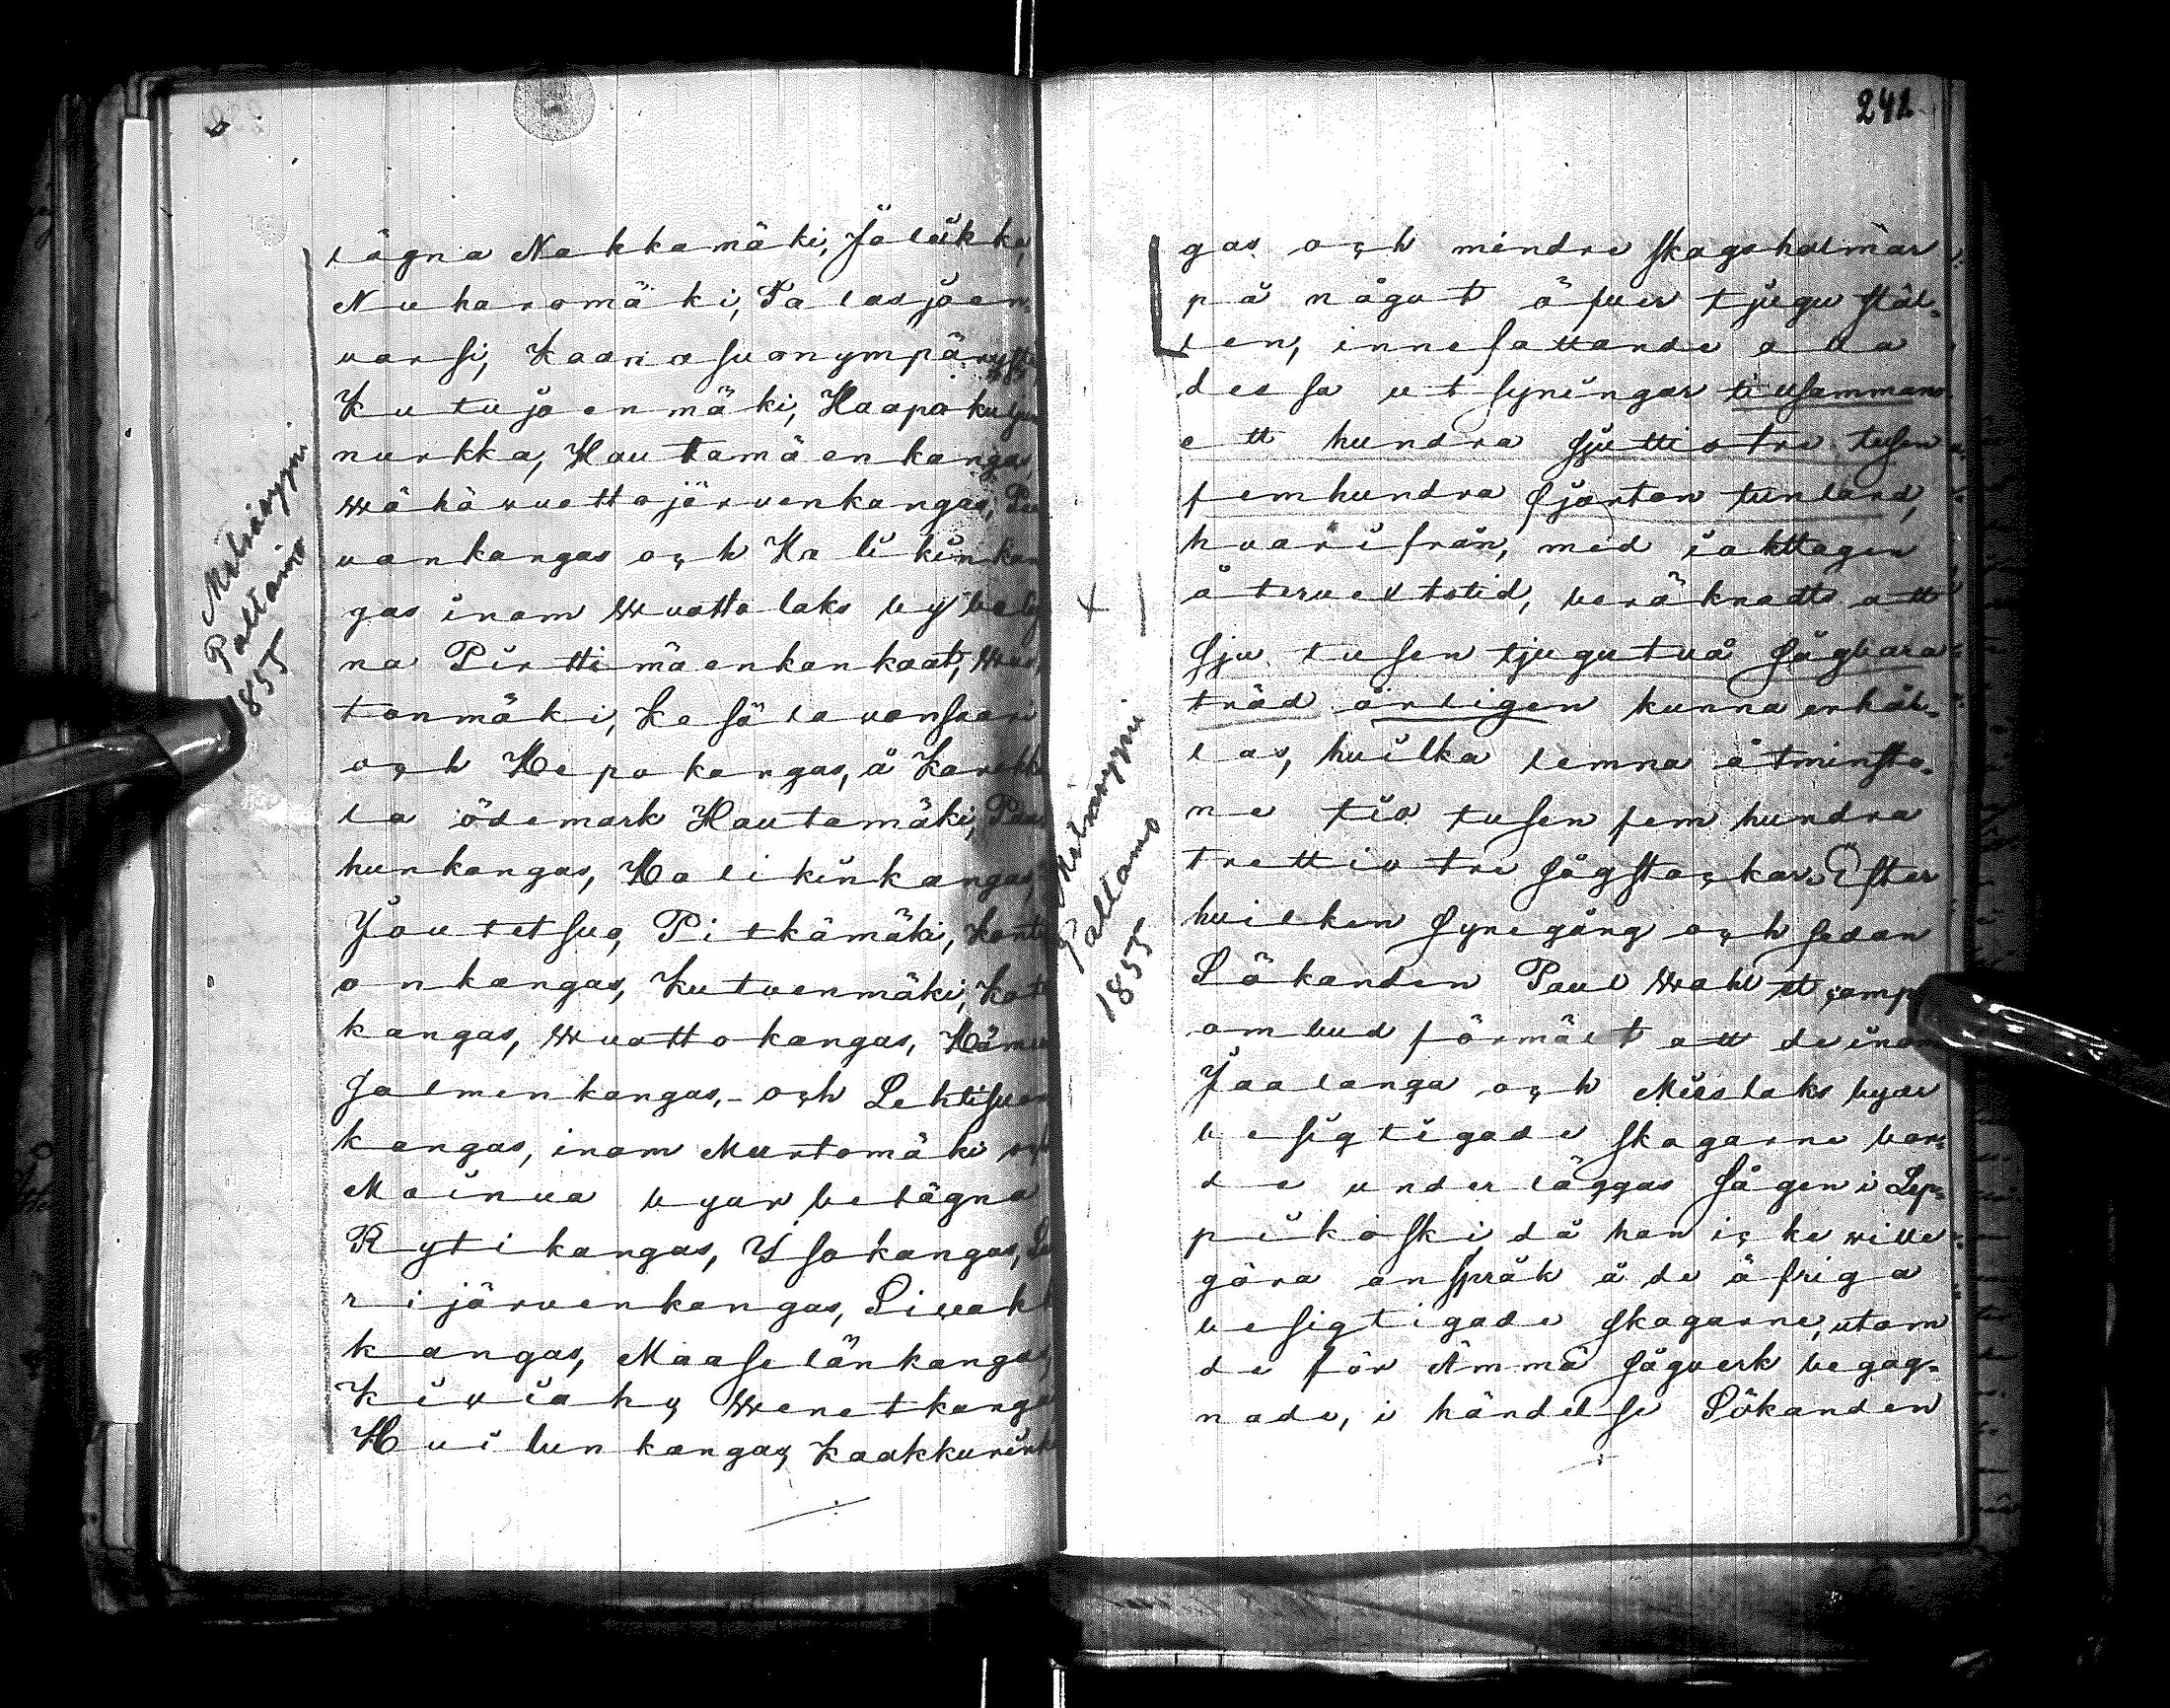 lägna Nakkamäki, Jäläkkä,
Nuharomäki, Talasjoen
varsi, Kaanasuonympärystä,
Kutujoenmäki, Haapakulju
nurkka, Hautamäenkangas,
Wähäwuottojärvenkangas,
vankangas och Halikinkan
gas inom Wuottolaks by beläg
na Pirttimäenkankaat,
tonmäki, Kesälavansaari
och Hepokangas, å
la ödemark Hautamäki,
hunkangas, Halikinkangas,
Joutetsuo, Pitkämäki,
onkangas, Kutuenmäki,
kangas, Wuottokangas,
Salmenkangas,- och Lehtisuon
kangas, inom Murtomäki och
Mainua byar belägna
Rytikangas, Isokangas,
rijärvenkangas, Sivakka
kangas, Maaselänkangas,
Kiviaho, Wenetkangas
Huilunkangas, Kaakkurink
Melnirsyyni
Paltamo
1855
241
gas och mindre skogsholmar
på något öfver tjugu stäl-
len, innefattande alla
dessa utsyningar tillsammans
ett hundra sjuttiotre tusen
femhundra fjorton tunland,
hvarifrån, med iakttagen
återvextstid, beräknadts att
sju tusen tjugutvå sågbara
träd årligen kunna erhål-
las, hvilka lemna åtminsto-
ne tio tusen fem hundra
trettiotre sågstockar. Efter
hvilken synegång och sedan
Sökanden Paul Wahl et Comp
ombud förmält att de inom
Jaalanga och Mieslaks byar
besigtigade skogarne bor-
de underläggas Sågen i Lep-
pikoski då han icke wille
göra anspråk å de öfriga
besigtigade skogarne, utom
de för Ämmä sågverk begag-
nade, i händelse Sökanden
Paltamo
1855